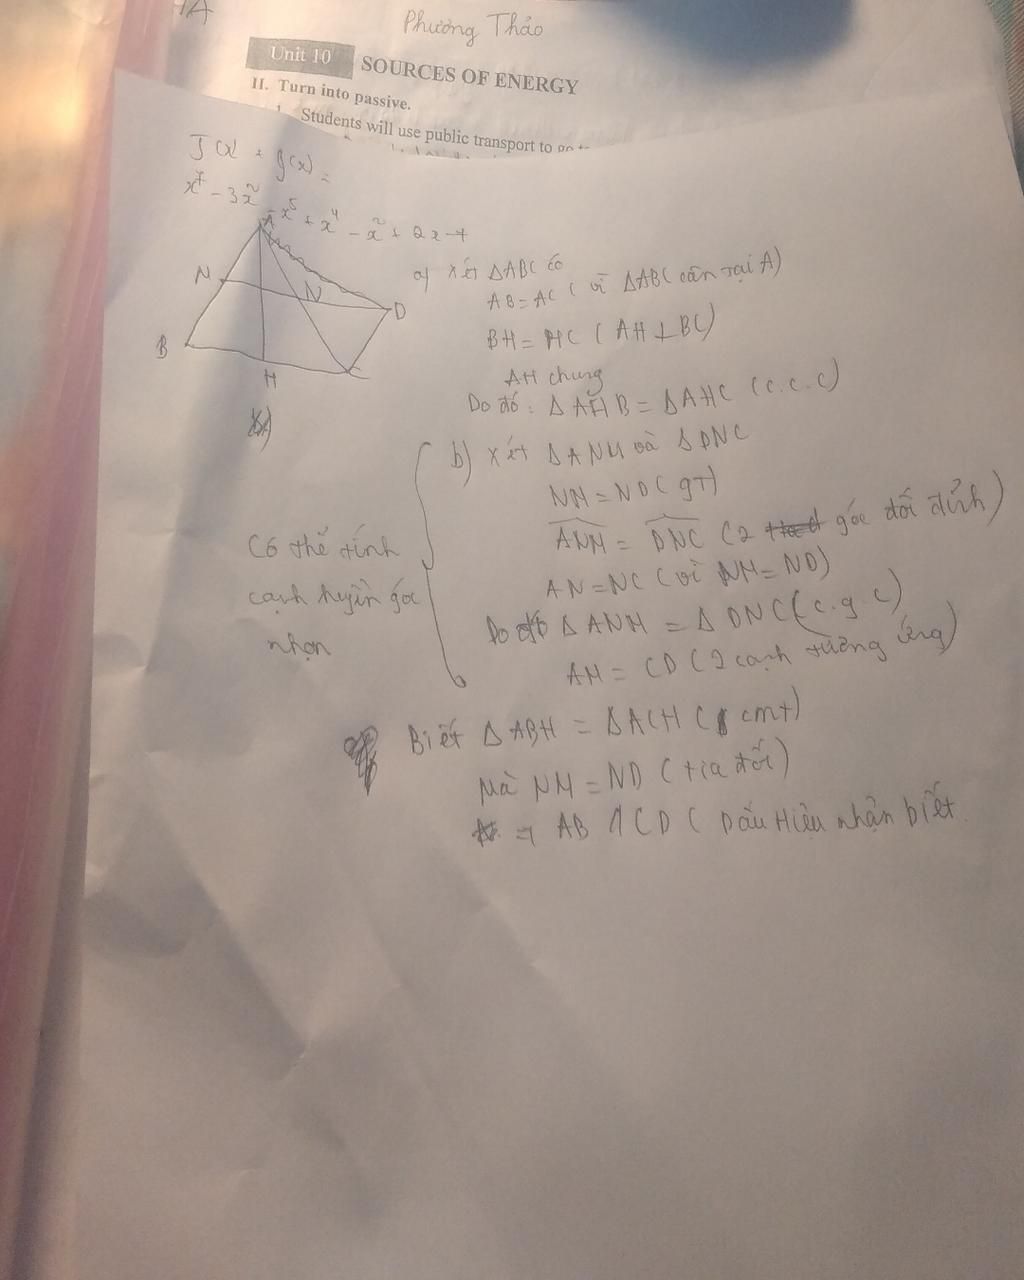 Phương Thảo
Unit 10 SOURCES OF ENERGY
II. Turn into passive.
Students will use public transport to go
f(x) + g(x) =
x⁷ - 3x² - x⁵ + x⁴ - x² + 2x - 7
A
N
N
D
B
H
C
a) xét ΔABC có
AB = AC ( vì ΔABC cân tại A)
BH = HC ( AH ⊥ BC)
AH chung
Do đó : ΔAHB = ΔAHC (c.c.c)
b) xét ΔANM và ΔDNC
NM = ND ( gT)
ANM = DNC (2 góc đối đỉnh)
AN = NC ( vì NM = ND)
Do đó ΔANM = ΔDNC ( c.g.c)
AM = CD ( 2 cạnh tương ứng)
Có thể tính
cạnh huyền góc
nhọn
Biết ΔABH = ΔACH ( cmt)
Mà NM = ND ( tia đối)
⇒ AB // CD ( Dấu Hiệu nhận biết